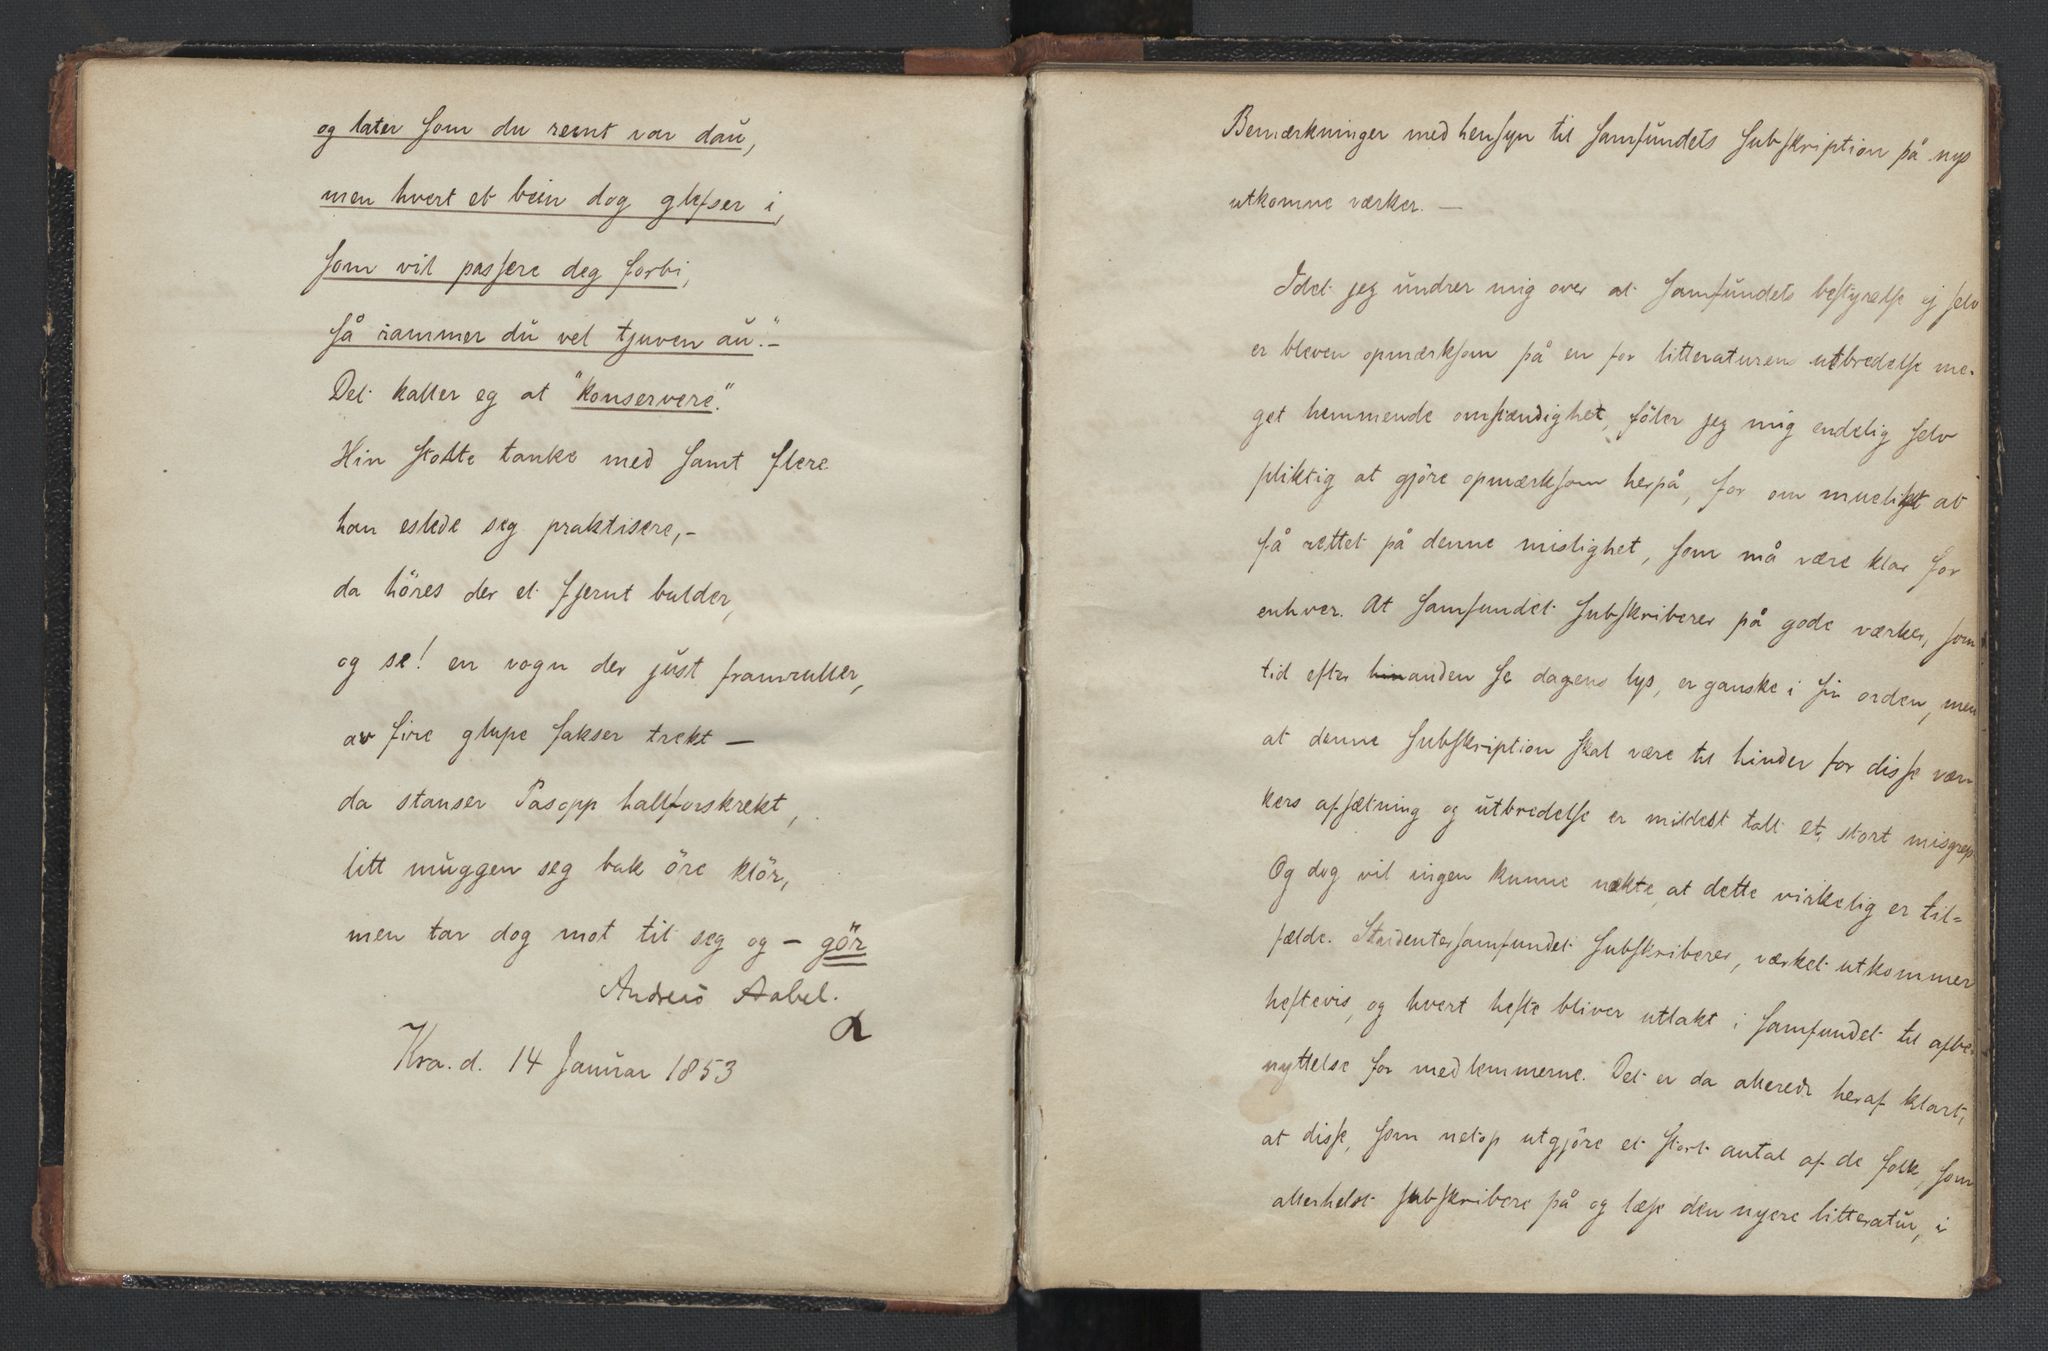 og later som du reint var dau,
men hvert et bein dog glefser i,
som vil passere deg forbi,
så rammer du vel tjuven au."-
Det kaller eg at "konservere".
Hin stolte tanke med samt flere
han eslede seg praktisere,-
da höres der et fjernt bulder,
og se! en vogn der just framruller,
av fire glupe fakser trekt —
da stanser Pasopp hallforskrekt,
litt muggen seg bak öre klör,
men tar dog mot til seg og – gör
Andreas Aabel.
Kra. d. 14 Januar 1853
Bemærkninger med hensyn til samfundets subskription på nys
utkomne værker. —
Idet jeg undrer mig over at samfundets bestyrelse ej selv
er bleven opmærksom på en for litteraturens utbredelse me-
get hemmende omstændighet, föler jeg mig endelig selv
pliktig at gjöre opmærksom herpå, for om mueligt at
få rettet på denne mislighet, som må være klar for
enhver. At samfundet subskriberer på gode værker, som
tid efter hinanden se dagens lys, er ganske i sin orden, men
at denne subskription skal være til hinder for disse vær-
kers afsætning og utbredelse er mildest talt et stort misgrep
Og dog vil ingen kunne nekte, at dette virkelig er til=
fælde. Studentersamfundet subskriberer, værket utkommer
heftevis, og hvert hefte bliver utlakt i samfundet til afbe-
nyttelse for medlemmerne. Det er da allerede heraf klart,
at disse, som netop utgjöre et stort antal af de folk, som
allerhelst subskribere på og læse den nyere litteratur, i